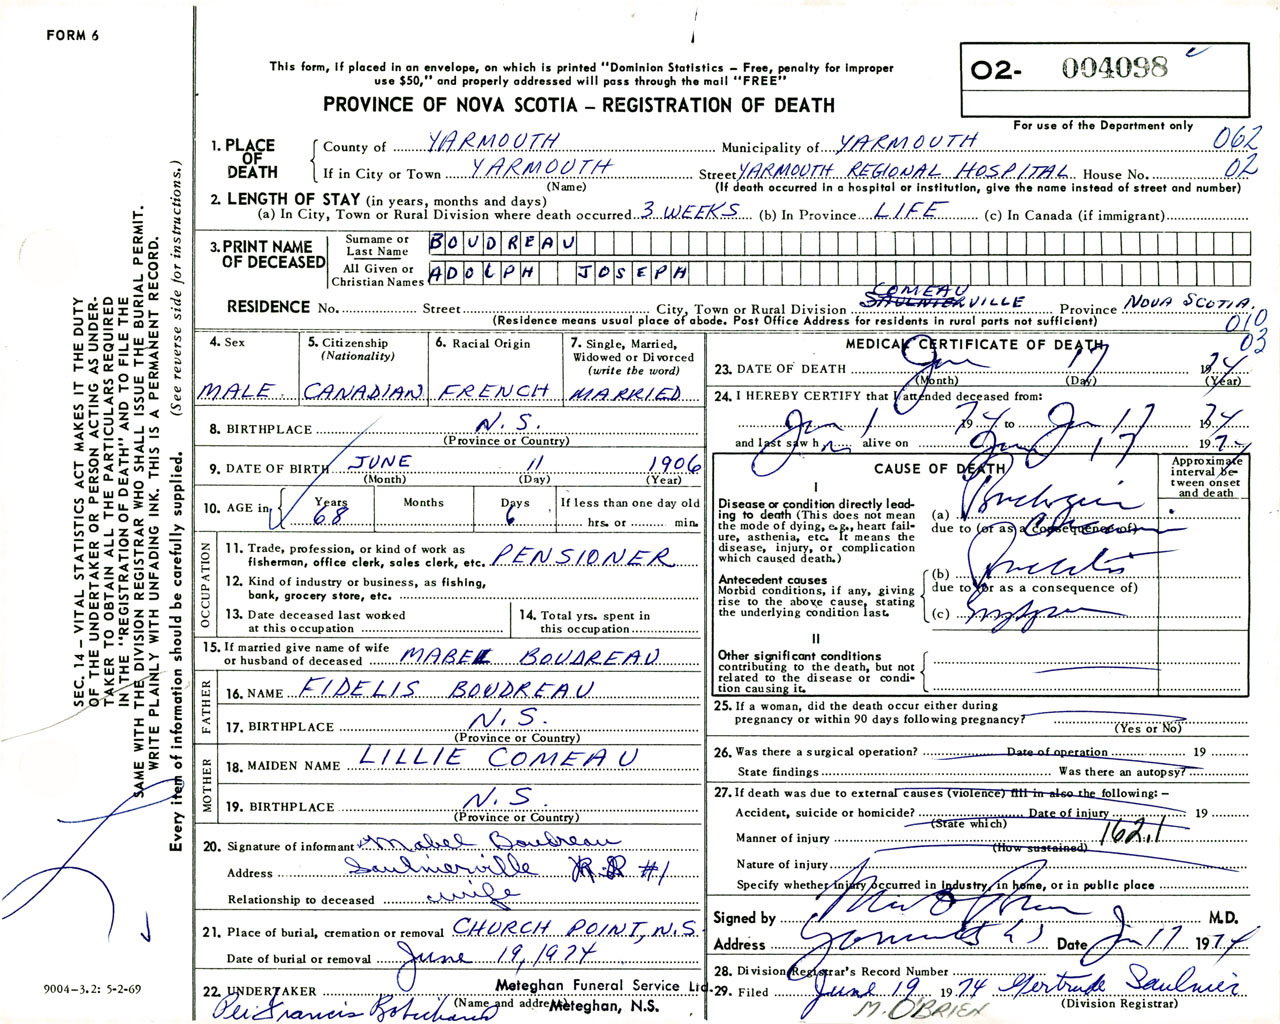 FORM 6
This form, if placed in an envelope, on which is printed "Dominion Statistics – Free, penalty for improper
use $50," and properly addressed will pass through the mail "FREE"
O2- 004098
PROVINCE OF NOVA SCOTIA – REGISTRATION OF DEATH
For use of the Department only
062
02
1. PLACE OF DEATH
County of YARMOUTH Municipality of YARMOUTH
If in City or Town YARMOUTH Street YARMOUTH REGIONAL HOSPITAL House No.
(Name) (If death occurred in a hospital or institution, give the name instead of street and number)
2. LENGTH OF STAY (in years, months and days)
(a) In City, Town or Rural Division where death occurred 3 WEEKS (b) In Province LIFE (c) In Canada (if immigrant)
3. PRINT NAME OF DECEASED
Surname or Last Name BOUDREAU
All Given or Christian Names ADOLPH JOSEPH
COMEAU
RESIDENCE No. Street City, Town or Rural Division SAULNIERVILLE Province NOVA SCOTIA
(Residence means usual place of abode. Post Office Address for residents in rural parts not sufficient)
010
03
4. Sex MALE
5. Citizenship (Nationality) CANADIAN
6. Racial Origin FRENCH
7. Single, Married, Widowed or Divorced (write the word) MARRIED
8. BIRTHPLACE N.S.
(Province or Country)
9. DATE OF BIRTH JUNE 11 1906
(Month) (Day) (Year)
10. AGE in Years 68 Months Days 6 If less than one day old hrs. or min.
OCCUPATION
11. Trade, profession, or kind of work as fisherman, office clerk, sales clerk, etc. PENSIONER
12. Kind of industry or business, as fishing, bank, grocery store, etc.
13. Date deceased last worked at this occupation
14. Total yrs. spent in this occupation
15. If married give name of wife or husband of deceased MABEL BOUDREAU
FATHER
16. NAME FIDELIS BOUDREAU
17. BIRTHPLACE N.S.
(Province or Country)
MOTHER
18. MAIDEN NAME LILLIE COMEAU
19. BIRTHPLACE N.S.
(Province or Country)
20. Signature of informant Mabel Boudreau
Address Saulnierville R.R #1
Relationship to deceased wife
21. Place of burial, cremation or removal CHURCH POINT, N.S.
Date of burial or removal June 19, 1974
22. UNDERTAKER Meteghan Funeral Service Ltd.
(Name and address) Meteghan, N.S.
Francis
MEDICAL CERTIFICATE OF DEATH
23. DATE OF DEATH Jun 17 1974
(Month) (Day) (Year)
24. I HEREBY CERTIFY that I attended deceased from:
Jun 1 1974 to Jun 17 1974
and last saw h m alive on Jun 17 1974
CAUSE OF DEATH
Approximate interval between onset and death
I
Disease or condition directly leading to death (This does not mean the mode of dying, e.g., heart failure, asthenia, etc. It means the disease, injury, or complication which caused death.)
(a)
due to (or as a consequence of)
Antecedent causes
Morbid conditions, if any, giving rise to the above cause, stating the underlying condition last.
(b)
due to (or as a consequence of)
(c)
II
Other significant conditions
contributing to the death, but not related to the disease or condition causing it.
25. If a woman, did the death occur either during pregnancy or within 90 days following pregnancy?
(Yes or No)
26. Was there a surgical operation? Date of operation 19
State findings Was there an autopsy?
27. If death was due to external causes (violence) fill in also the following: –
Accident, suicide or homicide? Date of injury 19
(State which)
162.1
Manner of injury
(How sustained)
Nature of injury
Specify whether injury occurred in industry, in home, or in public place
Signed by M.D.
Address Date Jun 17 1974
28. Division Registrar's Record Number
29. Filed June 19 1974 Gertrude Saulnier
(Division Registrar)
M. O'BRIEN
SEC. 14 – VITAL STATISTICS ACT MAKES IT THE DUTY
OF THE UNDERTAKER OR PERSON ACTING AS UNDER-
TAKER TO OBTAIN ALL THE PARTICULARS REQUIRED
IN THE "REGISTRATION OF DEATH" AND TO FILE THE
SAME WITH THE DIVISION REGISTRAR WHO SHALL ISSUE THE BURIAL PERMIT.
WRITE PLAINLY WITH UNFADING INK. THIS IS A PERMANENT RECORD.
Every item of information should be carefully supplied. (See reverse side for instructions.)
9004-3.2: 5-2-69